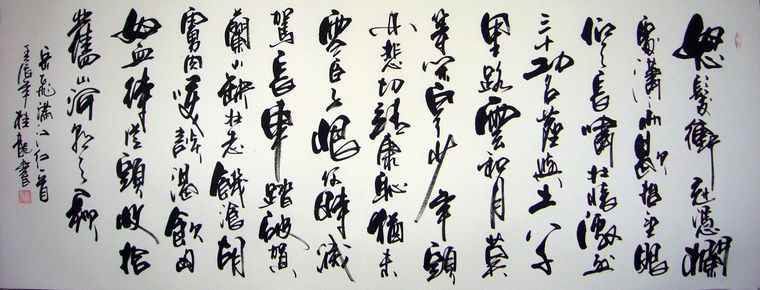 怒髮衝冠憑欄
處瀟々雨歇抬望眼
仰天長嘯壯懷激烈
三十功名塵與土八千
里路雲和月莫
等閒白了少年頭
空悲切靖康恥猶未
雪臣子恨何時滅
駕長車踏破賀
蘭山缺壯志饑餐胡
虜肉笑談渴飲匈
奴血待從頭收拾
舊山河朝天闕
岳飛滿江红一首
年桂龍書